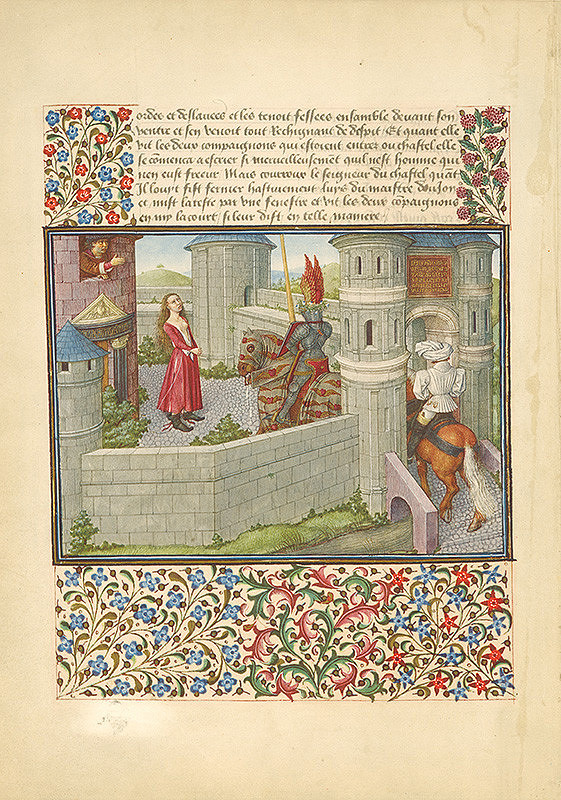 ordes et deslavees et les tenoit fessees ensamble devant son
ventre et sen venoit tout Rechignant de despit Et quant elle
vit les deux compaignons qui estoient entrez ou chastel elle
se comenca a escrier si merveilleusement quil nest homme qui
nen eust freeur Mais courroux le seigneur du chastel quāt
Il louyt fist fermer hastivement luys du maistre donjon
et mist la teste par une fenestre et vit les deux cōpaignons
en my la court si leur dist en telle maniere